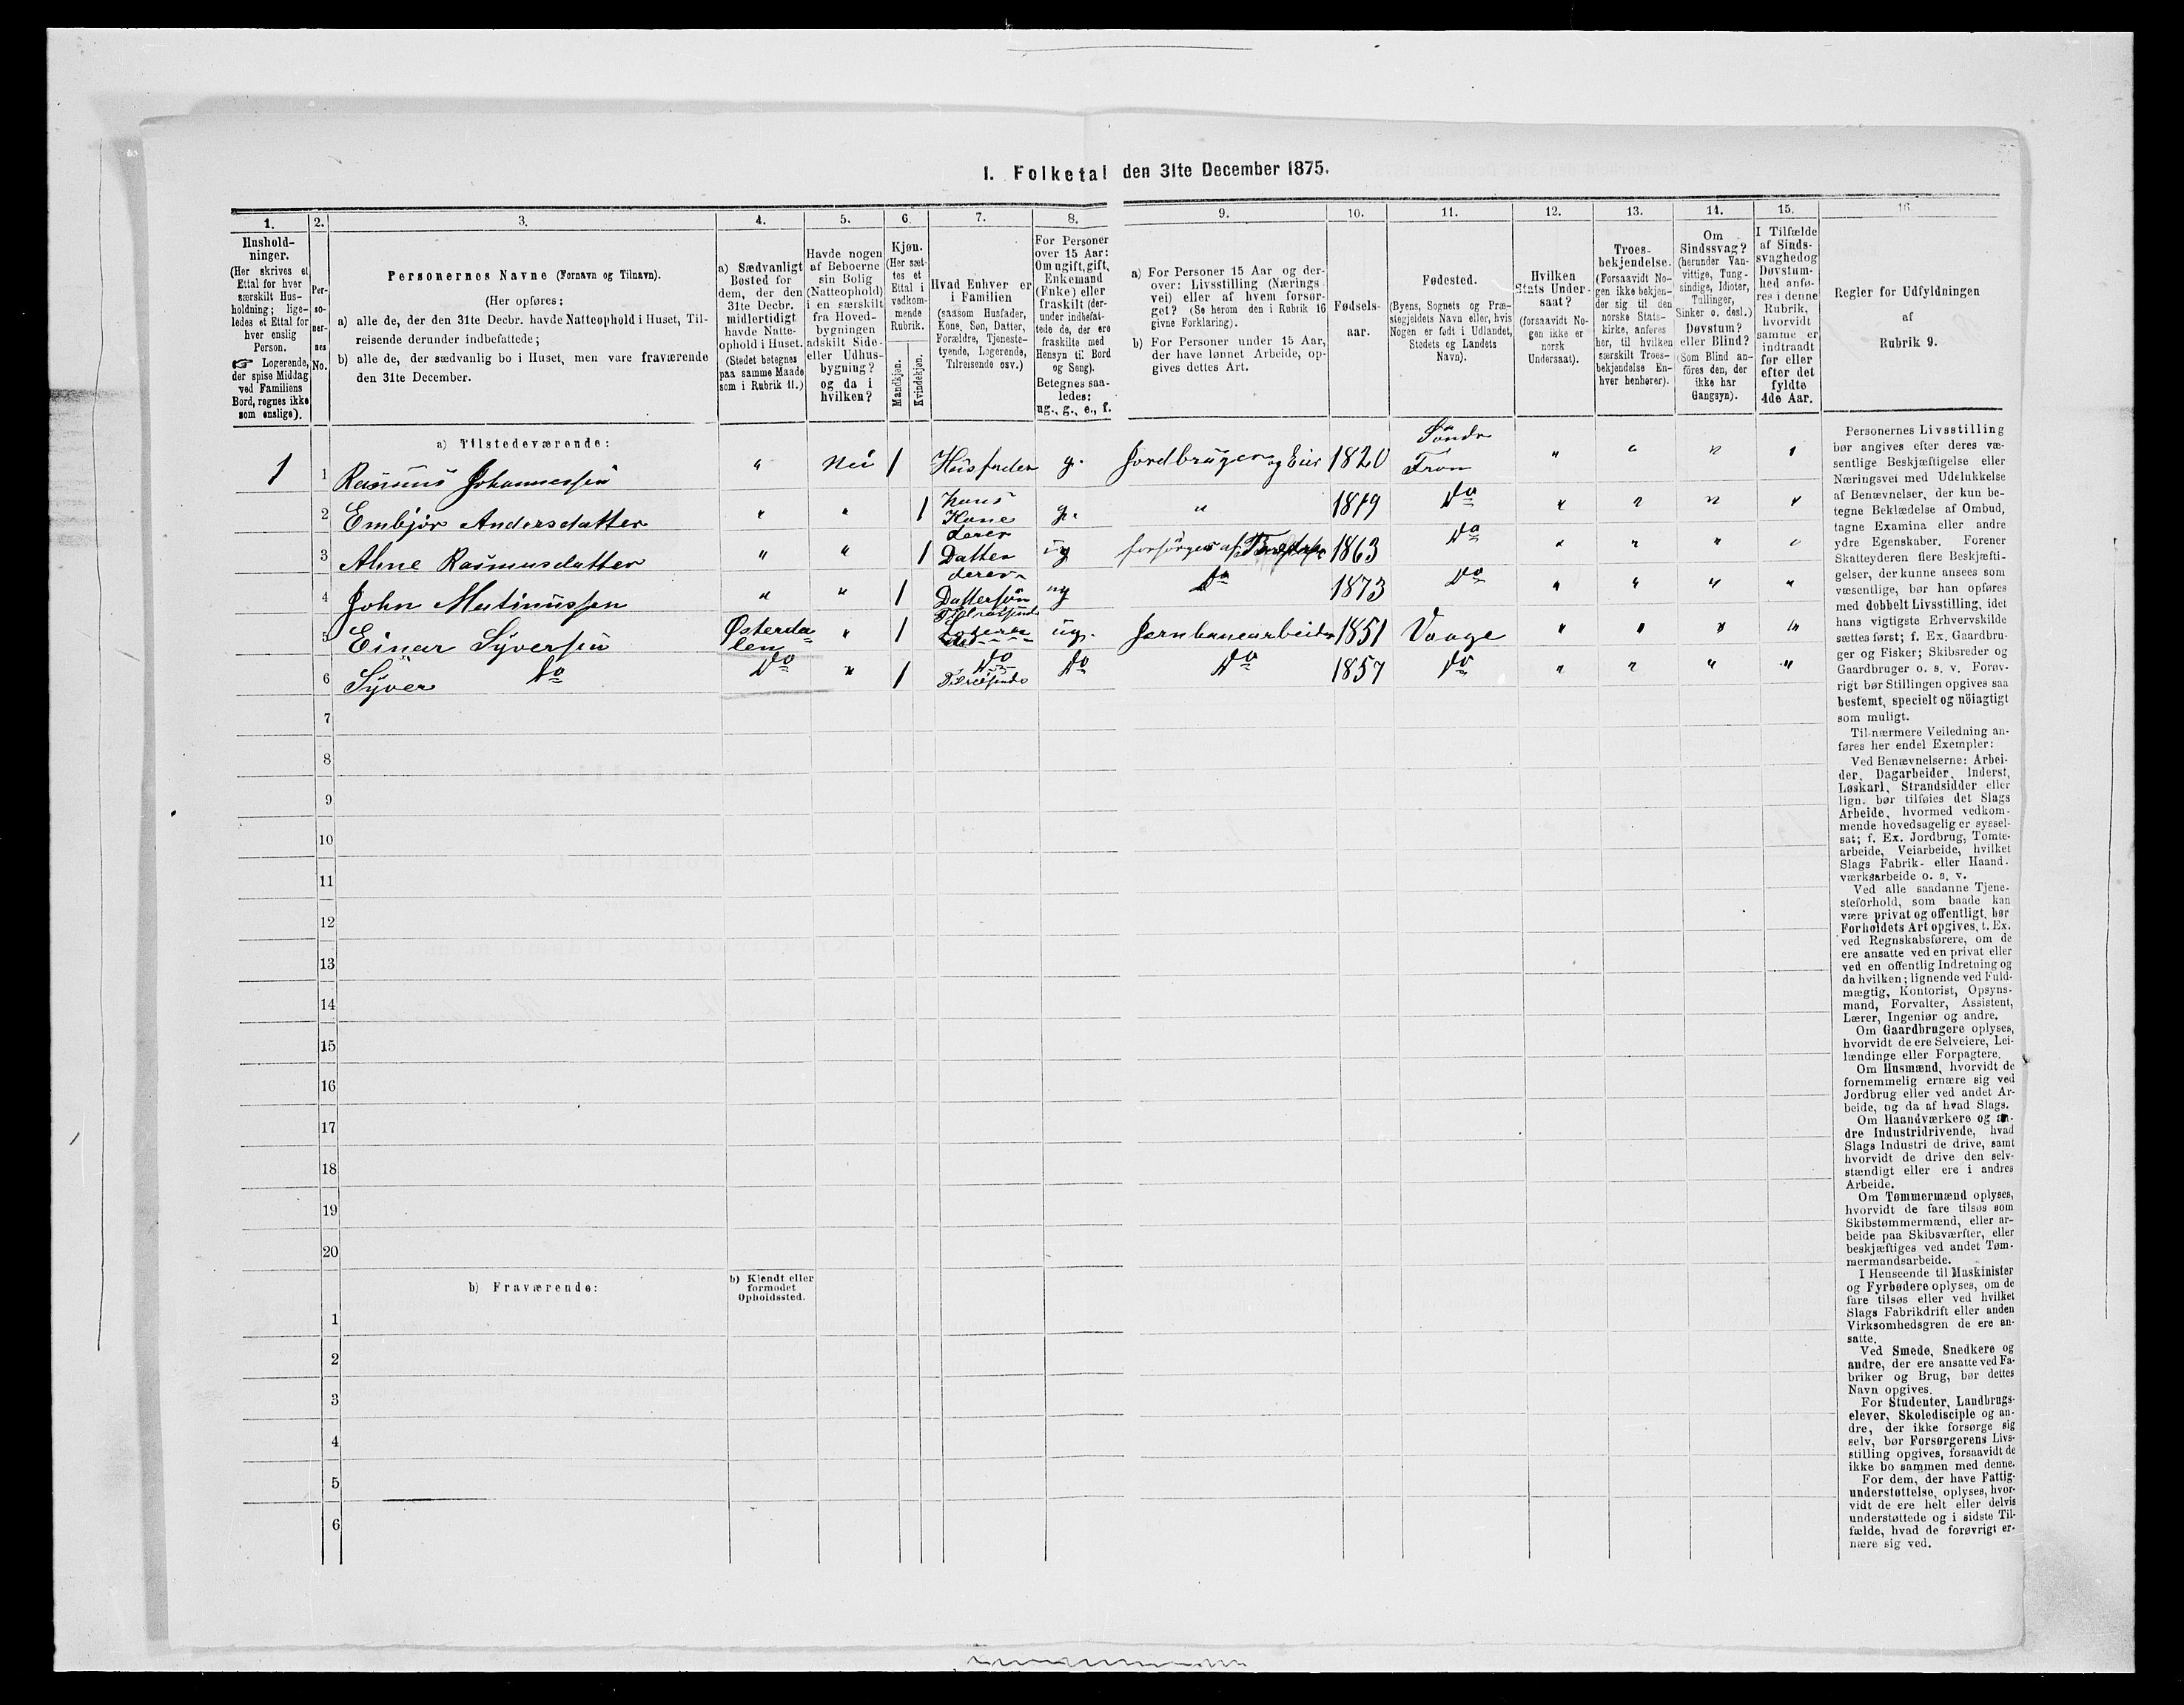 1. Folketal den 31te December 1875.
1. 2. 3. 4. 5. 6. 7. 8. 9. 10. 11. 12. 13. 14. 15. 16.
Hushold-
ninger.
(Her skrives et
Ettal for hver
særskilt Hus-
holdning; lige-
ledes et Ettal for
hver enslig
Person.
☞ Logerende,
der spise Middag
ved Familiens
Bord, regnes ikke
som enslige).
Per-
so-
ner-
nes
No.
Personernes Navne (Fornavn og Tilnavn).
(Her opføres:
a) alle de, der den 31te Decbr. havde Natteophold i Huset, Til-
reisende derunder indbefattede;
b) alle de, der sædvanlig bo i Huset, men vare fraværende
den 31te December.
a) Sædvanligt
Bosted for
dem, der den
31te Decbr.
midlertidigt
havde Natte-
ophold i Huset.
(Stedet betegnes
paa samme Maade
som i Rubrik 11.)
Havde nogen
af Beboerne
sin Bolig
(Natteophold)
i en særskilt
fra Hoved-
bygningen
adskilt Side-
eller Udhus-
bygning?
og da i
hvilken?
Kjøn.
(Her sæt-
tes et
Ettal i
vedkom-
mende
Rubrik.
Mandkjøn.
Kvindekjøn.
Hvad Enhver er
i Familien
(saasom Husfader,
Kone, Søn, Datter,
Forældre, Tjeneste-
tyende, Logerende,
Tilreisende osv.)
For Personer
over 15 Aar:
Om ugift, gift,
Enkemand
(Enke) eller
fraskilt (der-
under indbefat-
tede de, der ere
fraskilte med
Hensyn til Bord
og Seng).
Betegnes saa-
ledes:
ug., g., e., f.
a) For Personer 15 Aar og der-
over: Livsstilling (Nærings-
vei) eller af hvem forsør-
get? (Se herom den i Rubrik 16
givne Forklaring).
b) For Personer under 15 Aar,
der have lønnet Arbeide, op-
gives dettes Art.
Fødsels-
aar.
Fødested.
(Byens, Sognets og Præ-
stegjeldets Navn eller, hvis
Nogen er født i Udlandet,
Stedets og Landets
Navn).
Hvilken
Stats Under-
saat?
(forsaavidt No-
gen ikke er
norsk
Undersaat).
Troes-
bekjendelse.
(Forsaavidt No-
gen ikke bekjen-
der sig til den
norske Stats-
kirke, anføres
her, til hvilken
særskilt Troes-
bekjendelse En-
hver henhører).
Om
Sindssvag?
(herunder Van-
vittige, Tung-
sindige, Idioter,
Tullinger,
Sinker o. desl.)
Døvstum?
eller Blind?
(Som Blind an-
føres den, der
ikke har
Gangsyn).
I Tilfælde
af Sinds-
svaghed og
Døvstum-
hed anfø-
res i denne
Rubrik,
hvorvidt
samme er
indtraadt
før eller
efter det
fyldte
4de Aar.
Regler for Udfyldningen
af
Rubrik 9.
a) Tilstedeværende:
1 1 Rasmus Johannessen " Nei 1 Husfader g. Jordbruger og Eier 1820 Söndr Fron " " " "
2 Embjör Andersdatter " " 1 hans Kone g. " 1819 Do " " " "
3 Aline Rasmusdatter " " 1 deres Datter ug forsörges af 1863 Do " " " "
4 John " " 1 deres Dattersön ug Do 1873 Do " " " "
5 Einar Syversen Østerdalen " 1 Tilreisende ug. Jernbanearbeider 1851 Vaage " " " "
6 Syver Do Do " 1 Do Tilreisende Do Do 1857 Do " " " "
7
8
9
10
11
12
13
14
15
16
17
18
19
20
b) Fraværende:
b) Kjendt eller
formodet
Opholdssted.
1
2
3
4
5
6
Personernes Livsstilling
bør angives efter deres væ-
sentlige Beskjæftigelse eller
Næringsvei med Udelukkelse
af Benævnelser, der kun be-
tegne Beklædelse af Ombud,
tagne Examina eller andre
ydre Egenskaber. Forener
Skatteyderen flere Beskjæfti-
gelser, der kunne ansees som
væsentlige, bør han opføres
med dobbelt Livsstilling, idet
hans vigtigste Erhvervskilde
sættes først; f. Ex. Gaardbru-
ger og Fisker; Skibsreder og
Gaardbruger o. s. v. Forøv-
rigt bør Stillingen opgives saa
bestemt, specielt og nöiagtigt
som muligt.
Til nærmere Veiledning an-
føres her endel Exempler:
Ved Benævnelserne: Arbei-
der, Dagarbeider, Inderst,
Løskarl, Strandsidder eller
lign. bør tilføies det Slags
Arbeide, hvormed vedkom-
mende hovedsagelig er syssel-
sat; f. Ex. Jordbrug, Tomte-
arbeide, Veiarbeide, hvilket
Slags Fabrik- eller Haand-
værksarbeide o. s. v.
Ved alle saadanne Tjene-
steforhold, som baade kan
være privat og offentligt, bør
Forholdets Art opgives, f. Ex.
ved Regnskabsførere, om de
ere ansatte ved en privat eller
ved en offentlig Indretning og
da hvilken; lignende ved Fuld-
mægtig, Kontorist, Opsyns-
mand, Forvalter, Assistent,
Lærer, Ingeniør og andre.
Om Gaardbrugere oplyses,
hvorvidt de ere Selveiere, Lei-
lændinge eller Forpagtere.
Om Husmænd, hvorvidt de
fornemmelig ernære sig ved
Jordbrug eller ved andet Ar-
beide, og da af hvad Slags.
Om Haandværkere og an-
dre Industridrivende, hvad
Slags Industri de drive, samt
hvorvidt de drive den selv-
stændigt eller ere i andres
Arbeide.
Om Tømmermænd oplyses,
hvorvidt de fare tilsøs som
Skibstømmermænd, eller ar-
beide paa Skibsværfter, eller
beskjæftiges ved andet Tøm-
mermandsarbeide.
I Henseende til Maskinister
og Fyrbødere oplyses, om de
fare tilsøs eller ved hvilket
Slags Fabrikdrift eller anden
Virksomhedsgren de ere an-
satte.
Ved Smede, Snedkere og
andre, der ere ansatte ved Fa-
briker og Brug, bør dettes
Navn opgives.
For Studenter, Landbrugs-
elever, Skoledisciple og an-
dre, der ikke forsørge sig
selv, bør Forsørgerens Livs-
stilling opgives, forsaavidt de
ikke bo sammen med denne.
For dem, der have Fattig-
understøttelse, oplyses, hvor-
vidt de ere helt eller delvis
understøttede og i sidste Til-
fælde, hvad de forøvrigt er-
nære sig ved.